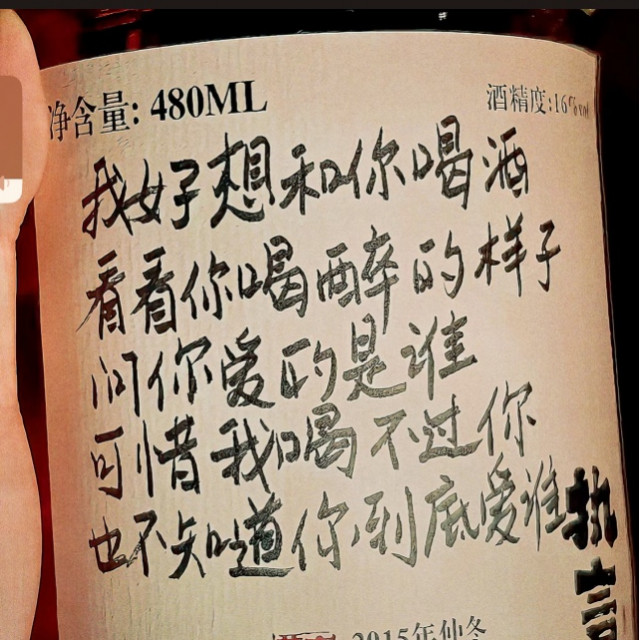 净含量: 480ML
酒精度:16%vol
我好想和你喝酒
看看你喝醉的样子
问你爱的是谁
可惜我喝不过你
也不知道你到底爱谁
执
2015年仲冬